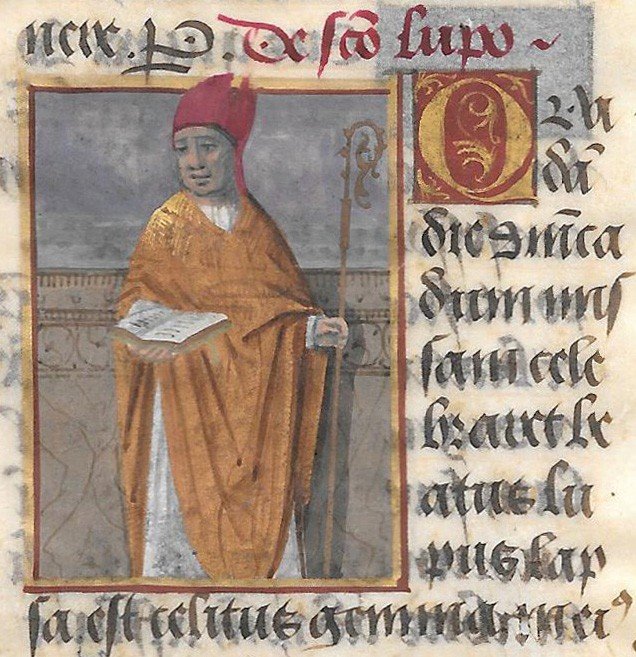 De scō lupo
Q ua
dā
die dn̄ica
dum mis
sam cele
braret be
atus lu
pus lap
sa est celitus gemma in eiꝰ